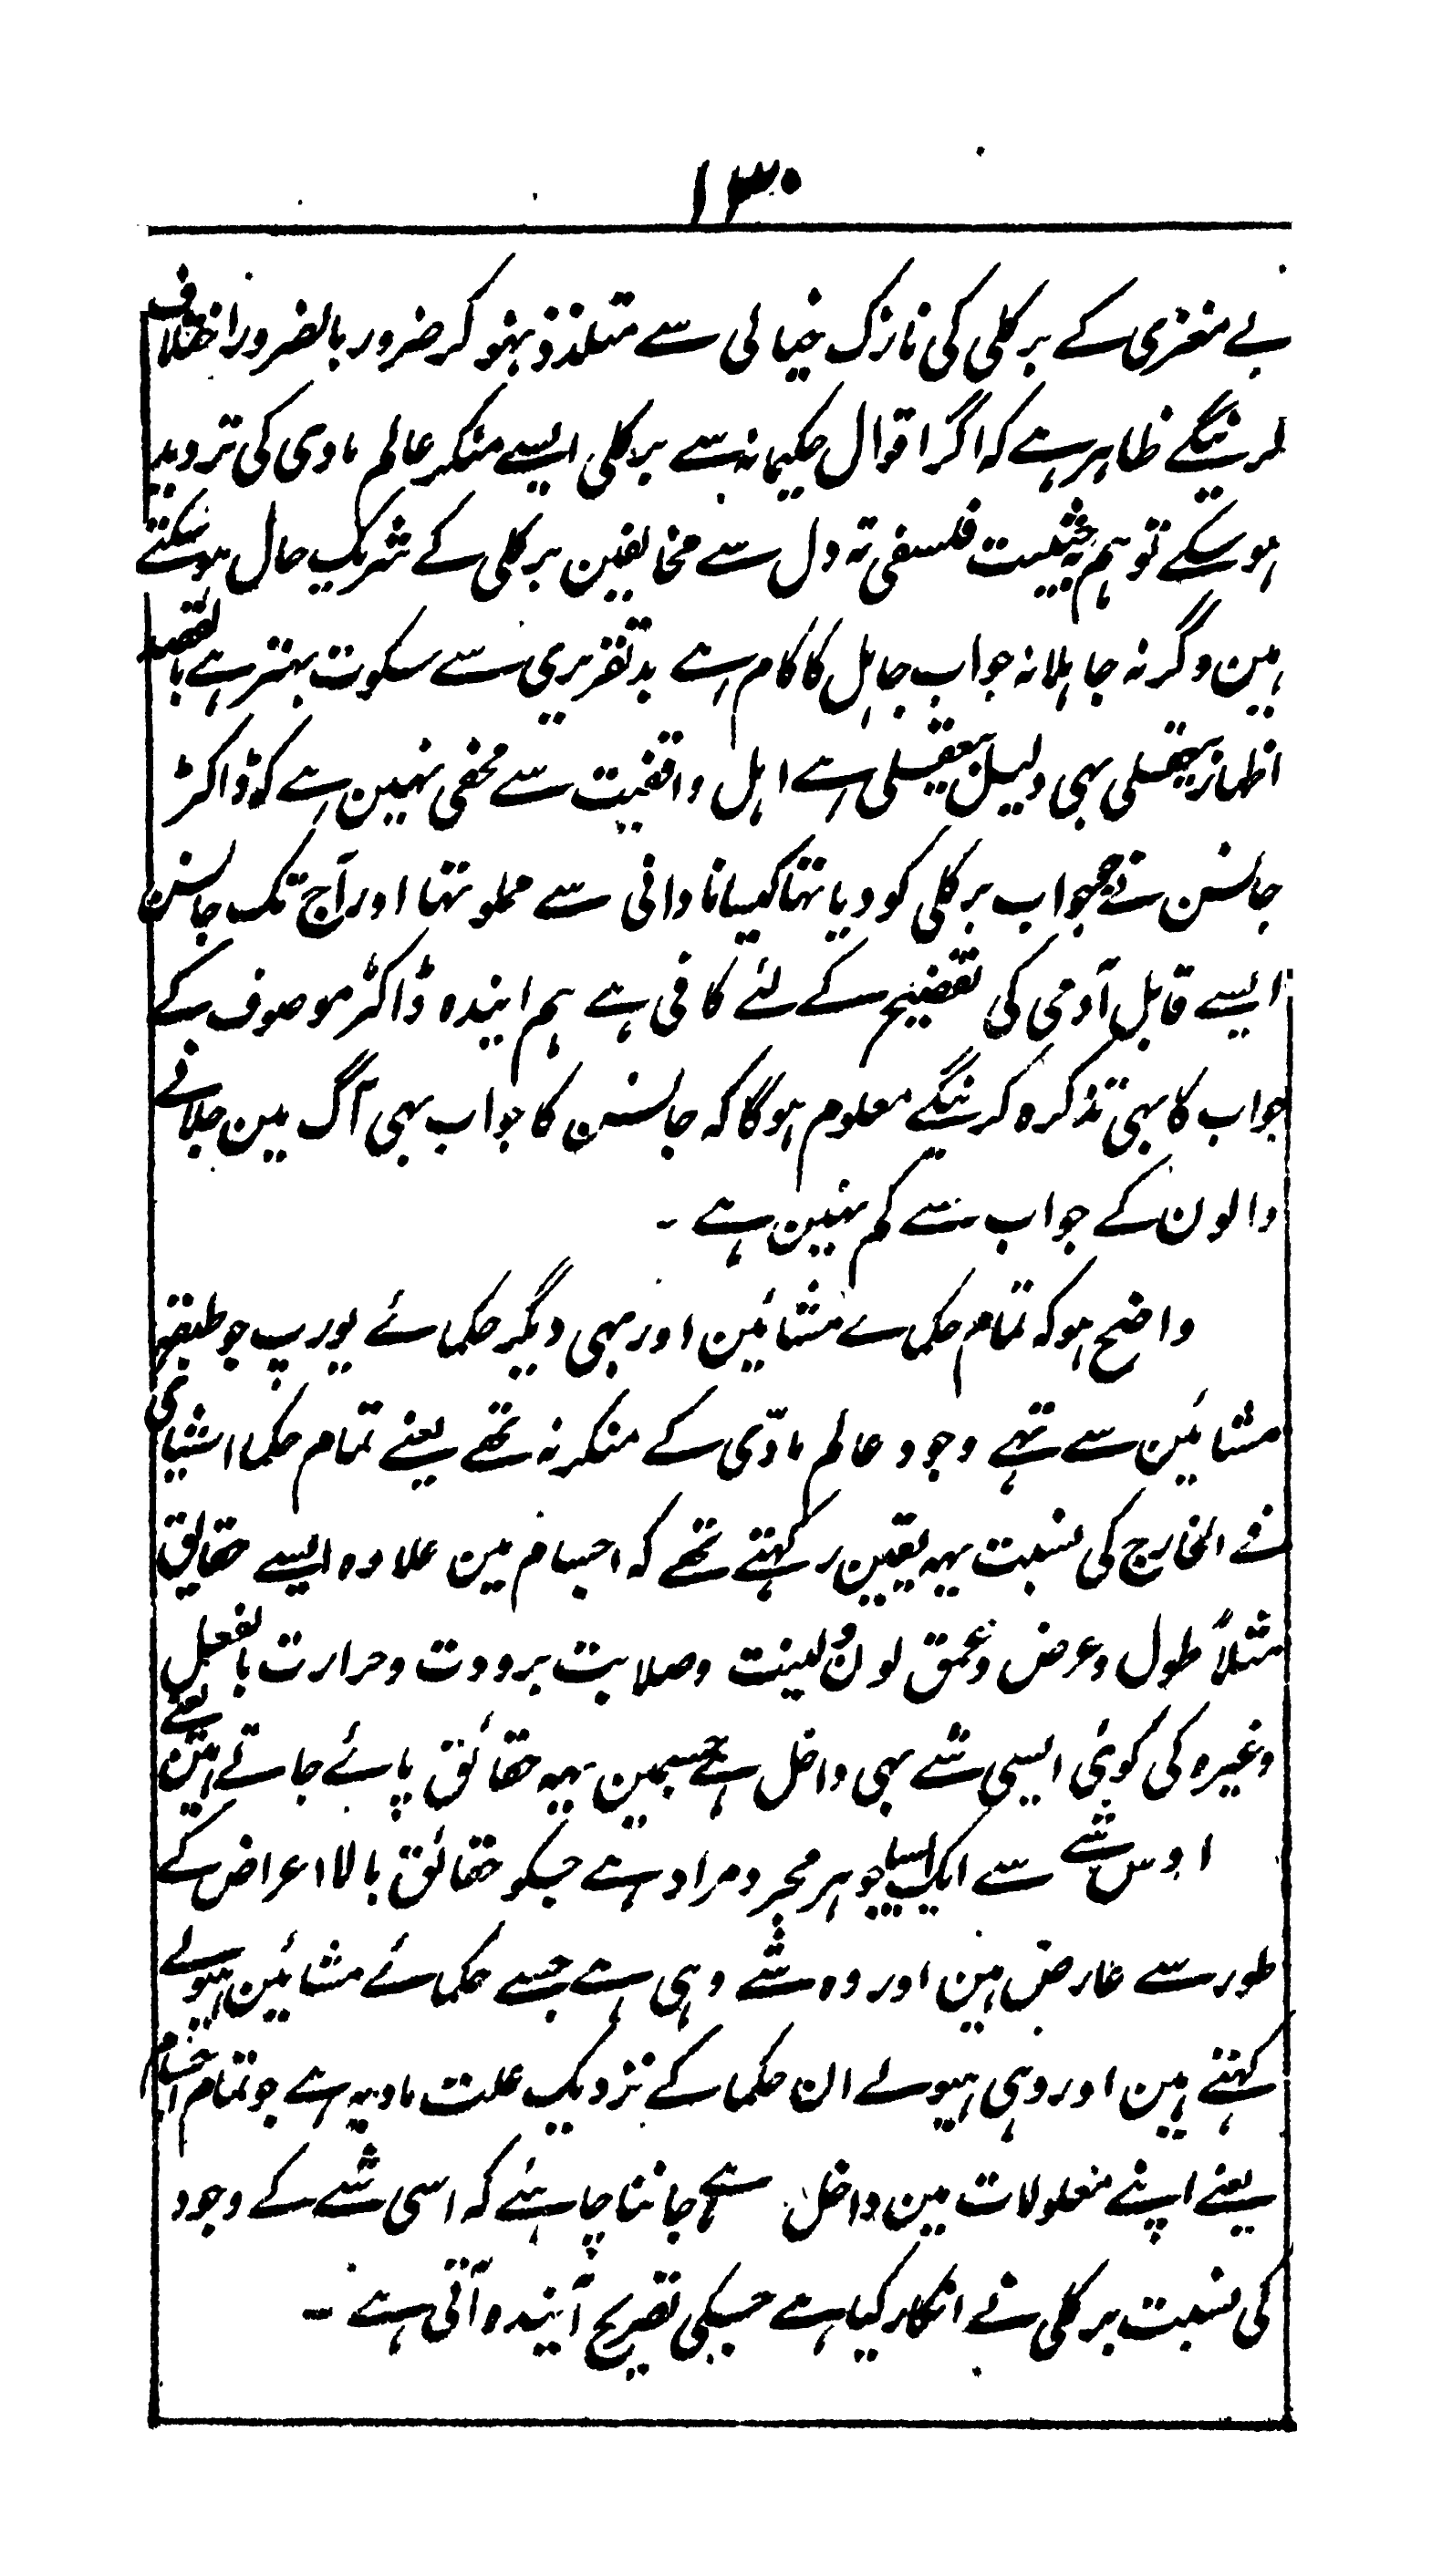 ۱۳۰
بے مغزی کے برکلی کی نازک خیالی سے متلذذ نہو کر ضرور بالضرور اختلاف
کرینگے ظاہر ہے کہ اگر اقوال حکیمانہ سے برکلی ایسے منکر عالم مادی کی تردید
ہوسکے تو ہم بحیثیت فلسفی تہ دل سے مخالفین برکلی کے شریک حال ہوسکتے
ہین وگرنہ جاہلانہ جواب جاہل کا کام ہے بدتقریری سے سکوت بہتر ہے بالقصد
اظہار بیعقلی بہی دلیل بیعقیلی ہے اہل واقفیت سے مخفی نہین ہے کہ ڈاکٹر
جانسن نے جو جواب برکلی کو دیا تہا کیسا نادانی سے مملو تہا اور آج تک جانسن
ایسے قابل آدمی کی تفضیح کے لئے کافی ہے ہم ایندہ ڈاکٹر موصوف کے
جواب کا بہی تذکرہ کرینگے معلوم ہوگا کہ جانسن کا جواب بہی آگ مین جلانے
والون کے جواب سے کم نہین ہے ۔
واضح ہو کہ تمام حکماے مشائین اور بہی دیگر حکمائے یورپ جو طبقہ
مشائین سے تہے وجود عالم مادّی کے منکر نہ تھے یعنے تمام حکما اشیای
فے الخارج کی نسبت یہہ یقین رکہتے تھے کہ اجسام مین علاوہ ایسے حقایق
مثلاً طول وعرض وعمق لون ولینت وصلابت برودت وحرارت بالفعل
وغیرہ کی کوئی ایسی شے بہی داخل ہے جسمین یہہ حقائق پائے جاتے ہین یعنے
اوس شے سے ایک ایسا جوہر مجرد مراد ہے جسکو حقائق بالا اعراض کے
طور سے عارض ہین اور وہ شے وہی ہے جسے حکمائے مشائین ہیولے
کہتے ہین اور وہی ہیولے ان حکما کے نزدیک علت مادیہ ہے جو تمام اجسام
یعنے اپنے معلولات مین داخل ہے جاننا چاہئے کہ اسی شے کے وجود
کی نسبت برکلی نے انکار کیا ہے جسکی تصریح آیندہ آتی ہے ۔